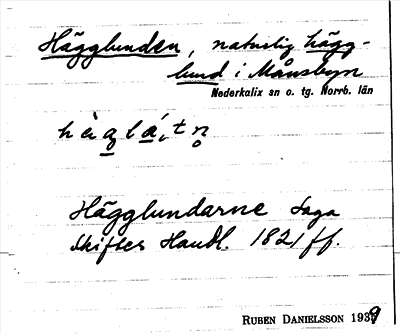 Hägglunden, naturlig hägg-
lund i Månsbyn
Nederkalix sn o. tg. Norrb. län
Hägglundarne Laga
Skiftes Handl. 1821 ff.
RUBEN DANIELSSON 1939